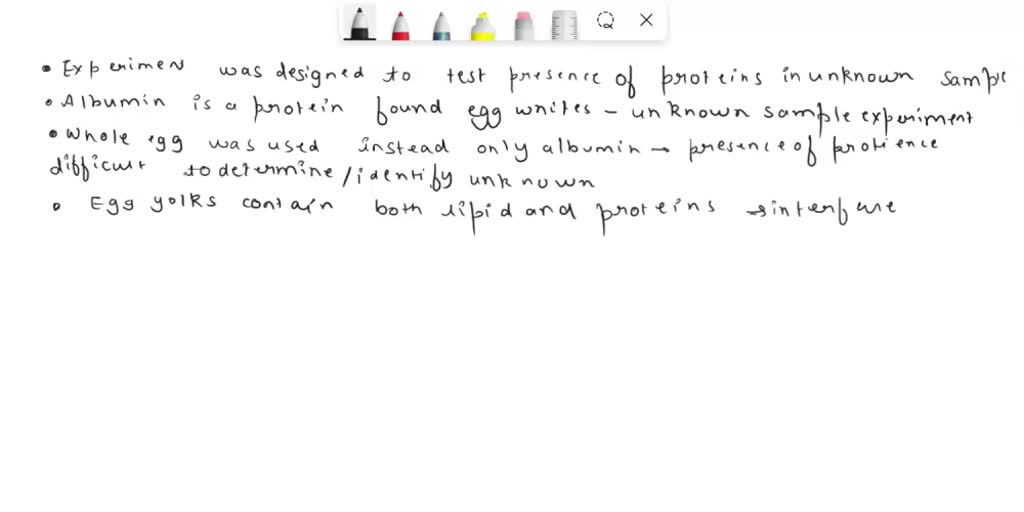 • Experimen was designed to test presence of proteins in unknown sample
• Albumin is a protein found egg whites - unknown sample experiment
• Whole egg was used instead only albumin → presence of protience
difficult to determine / identify unknown
• Egg yolks contain both lipid and proteins → interfure